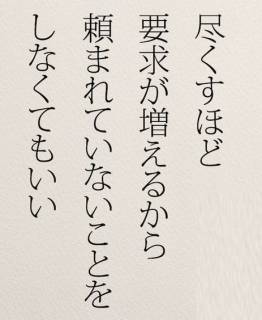 尽くすほど
要求が増えるから
頼まれていないことを
しなくてもいい